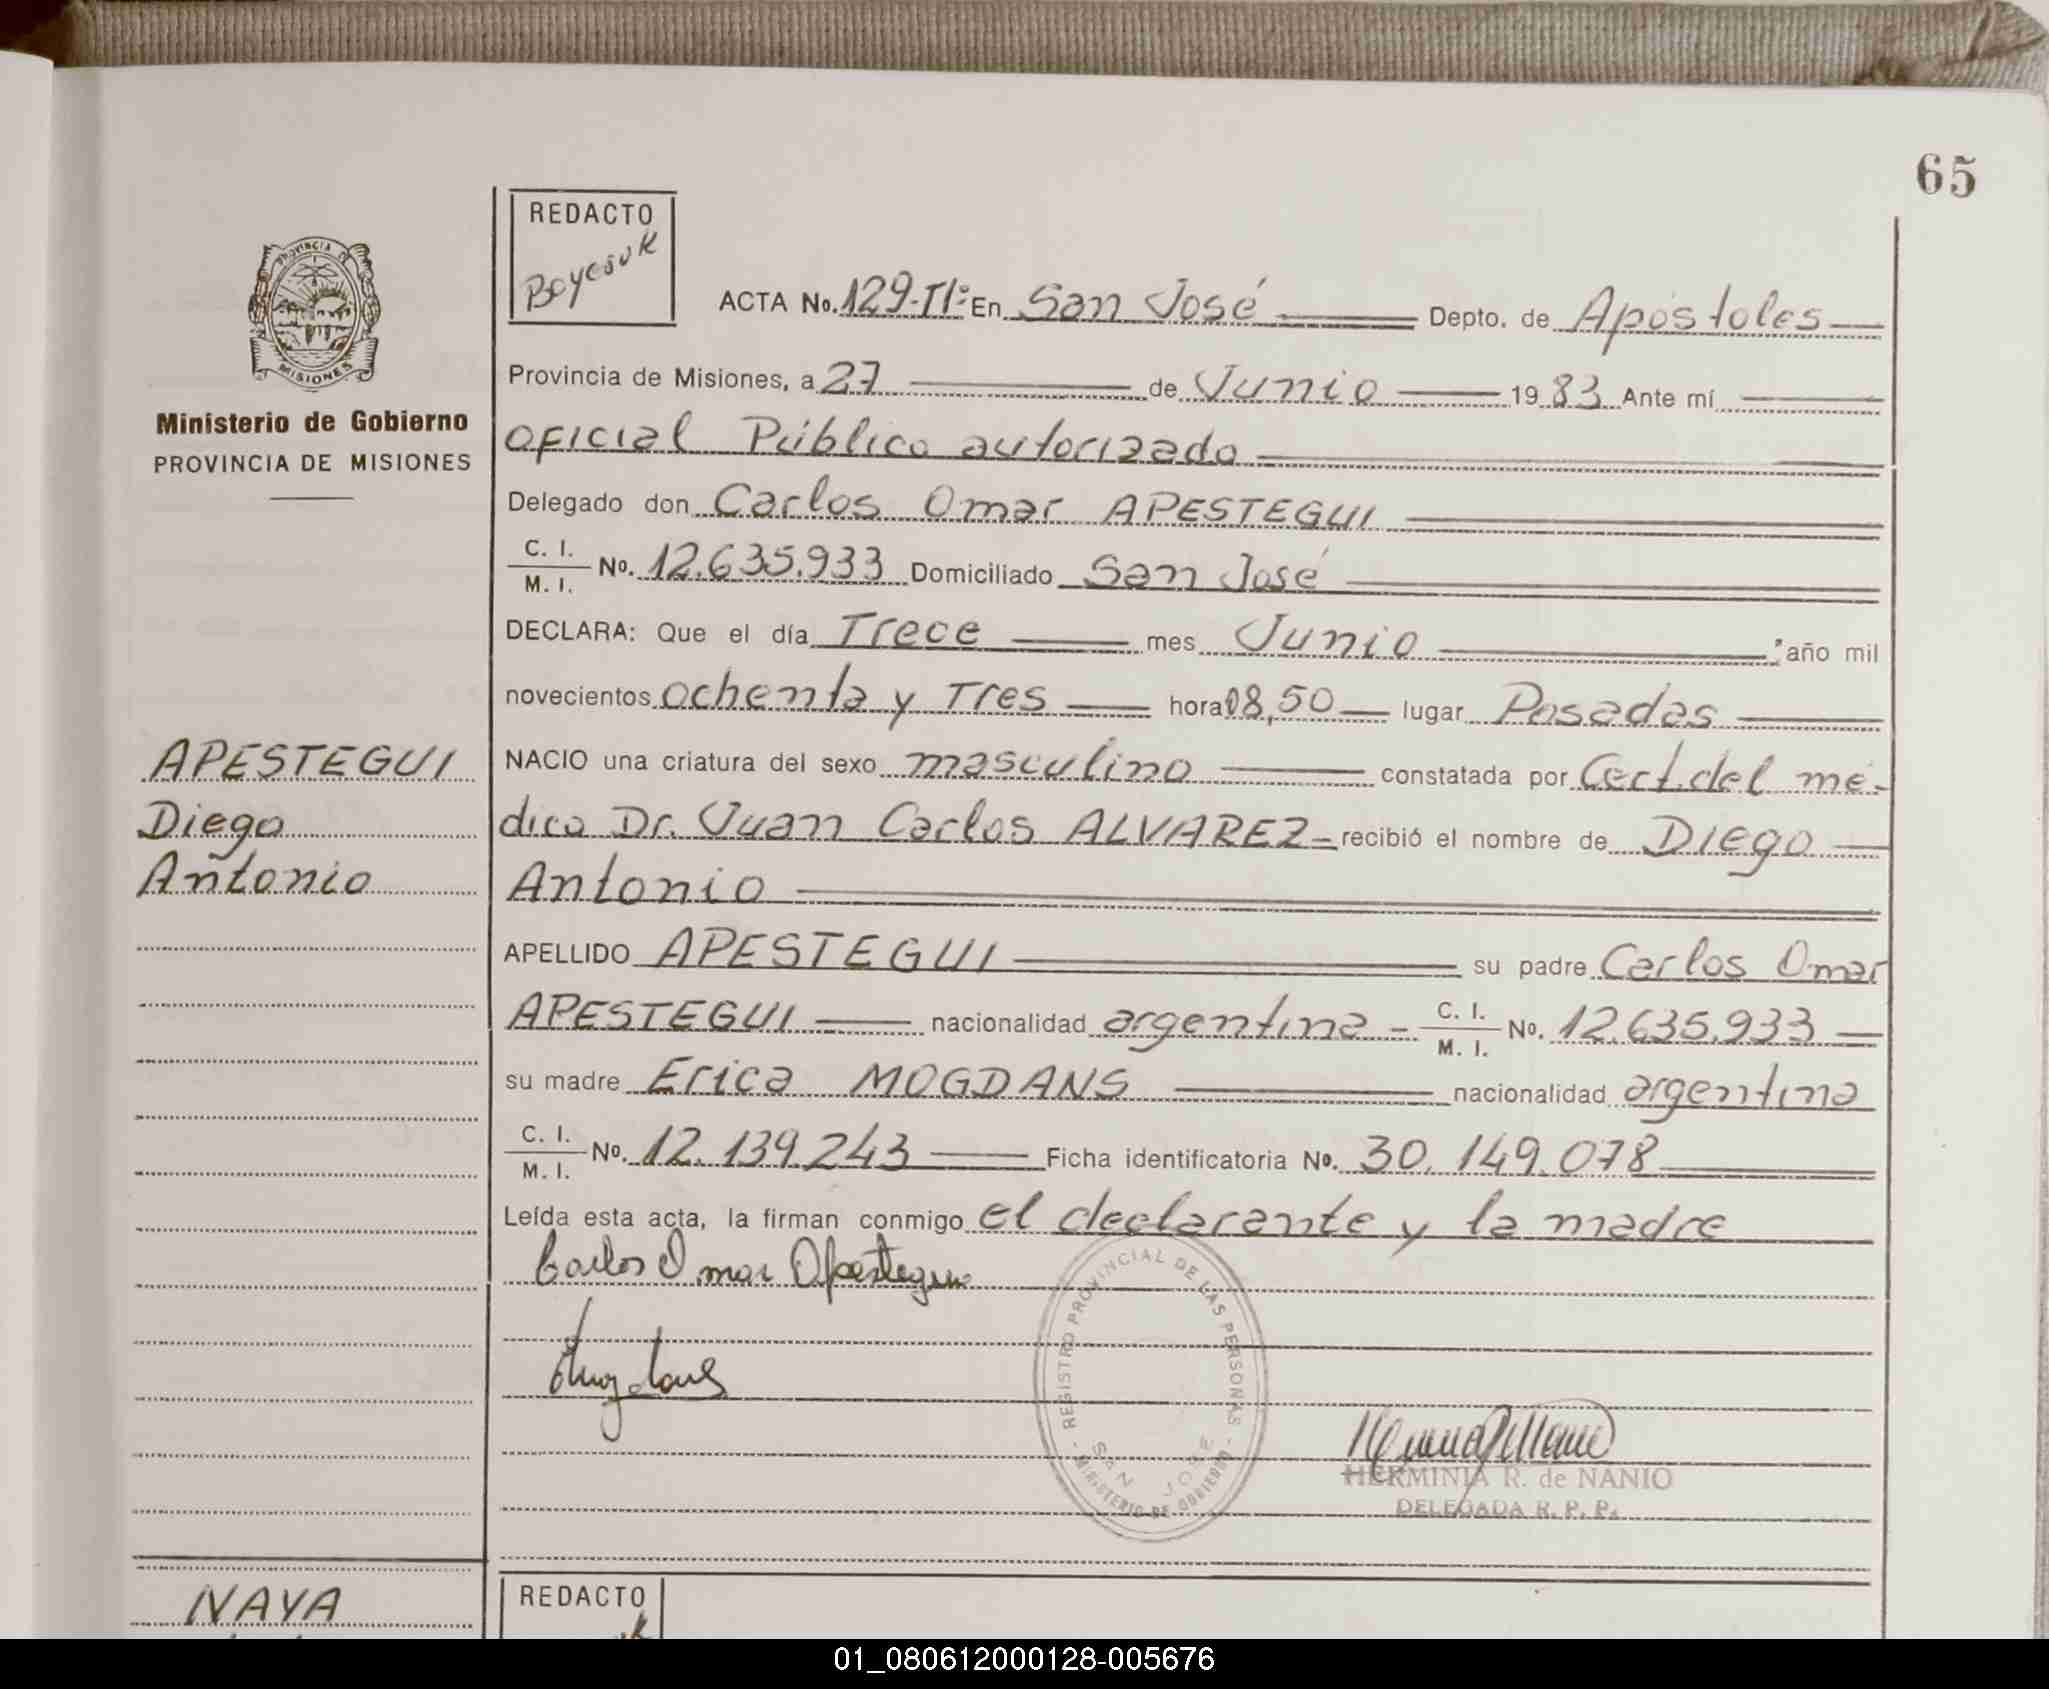 65
REDACTO
PROVINCIA DE
MISIONES
Ministerio de Gobierno
PROVINCIA DE MISIONES
ACTA No. 129-TI: En San José Depto. de Apóstoles
Provincia de Misiones, a 27 de Junio 1983 Ante mí
oficial Público autorizado
Delegado don Carlos Omar APESTEGUI
C. I. / M. I. No. 12.635.933 Domiciliado San José
DECLARA: Que el día Trece mes Junio : año mil
novecientos ochenta y Tres hora 08,50 lugar Posadas
NACIO una criatura del sexo masculino constatada por Cert. del mé-
dico Dr. Juan Carlos ALVAREZ recibió el nombre de Diego
Antonio
APELLIDO APESTEGUI su padre Carlos Omar
APESTEGUI nacionalidad argentina C. I. / M. I. No. 12.635.933
su madre Erica MOGDANS nacionalidad argentina
C. I. / M. I. No. 12.139.243 Ficha identificatoria No. 30.149.078
Leída esta acta, la firman conmigo el declarante y la madre
Carlos Omar Apestegui
APESTEGUI
Diego
Antonio
REGISTRO PROVINCIAL DE LAS PERSONAS
SAN JOSE
MINISTERIO DE GOBIERNO
HERMINIA R. de NANIO
DELEGADA R. P. P.
NAYA
REDACTO
01_080612000128-005676